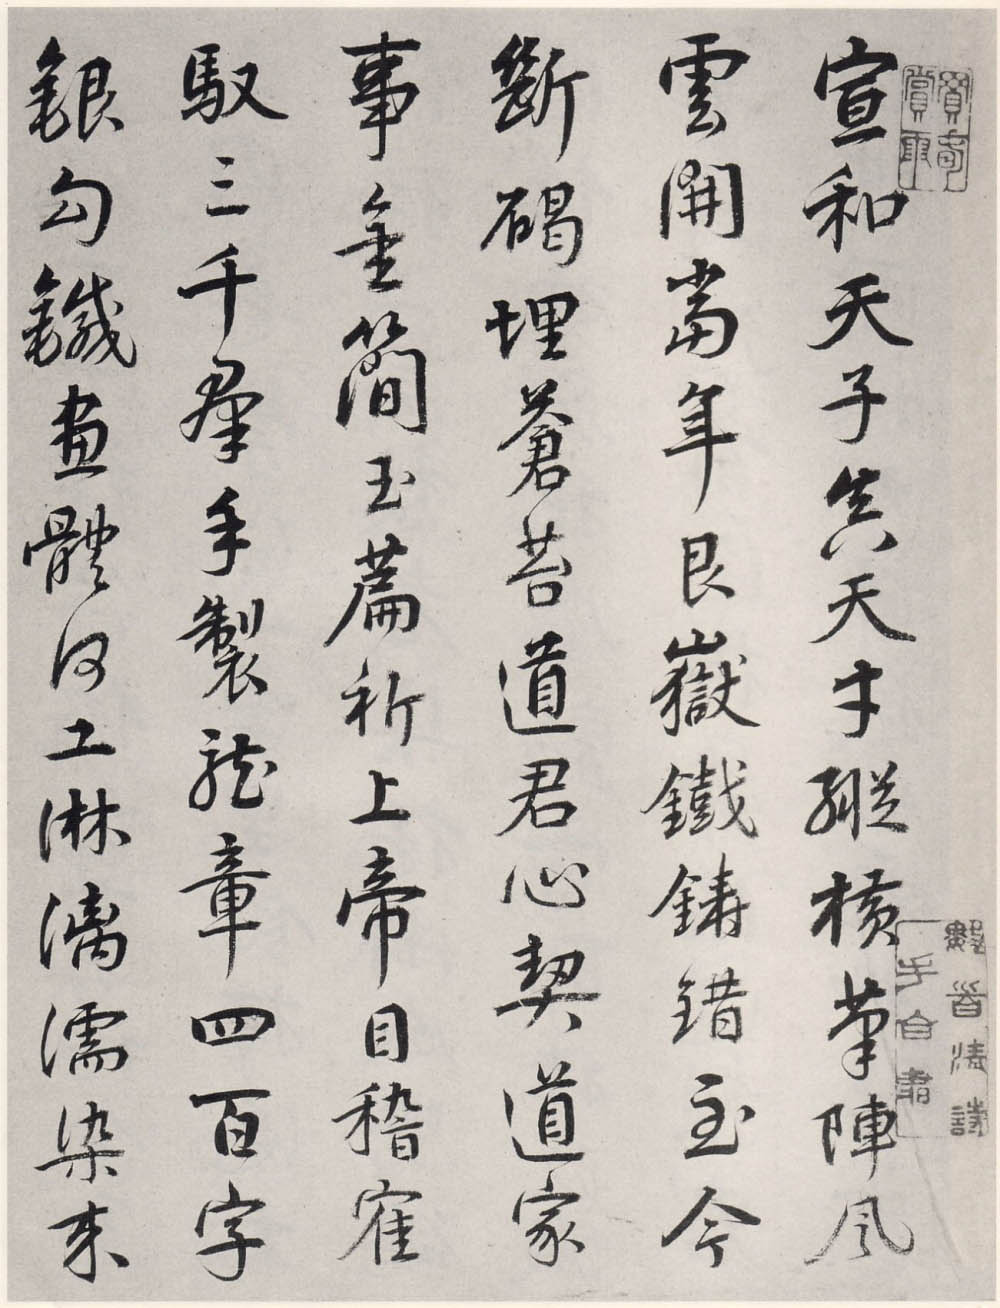 宣和天子真天才縱橫筆陣風
雲開當年艮嶽鐵鑄錯至今
斷碣埋蒼苔道君心契道家
事金簡玉篇祈上帝目稽寉
馭三千羣手製龍章四百字
銀勾鐵畫體何工淋漓濡染来